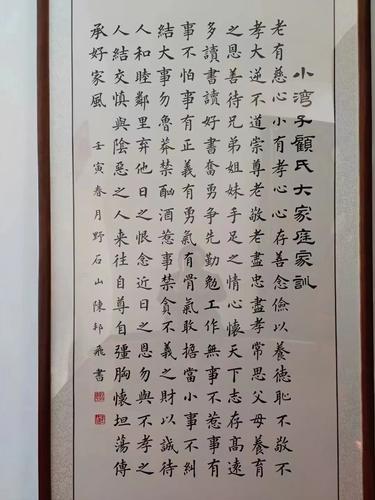 小湾子顧氏大家庭家訓
老有慈心小有孝心心存善念儉以養德恥不敬不
孝大逆不道崇尊老敬老盡忠盡孝常思父母養育
之恩善待兄弟姐妹手足之情心懷天下志存高遠
多讀書讀好書奮勇爭先勤勉工作無事不惹事有
事不怕事有正義有勇氣有骨氣敢擔當小事不糾
結大事勿魯莽禁酗酒惹事禁貪不義之財以誠待
人和睦鄰里弃他日之恨念近日之恩勿與不孝之
人結交慎與陰惡之人来往自尊自彊胸懷坦蕩傳
承好家風 壬寅春月野石山陳邦飛書